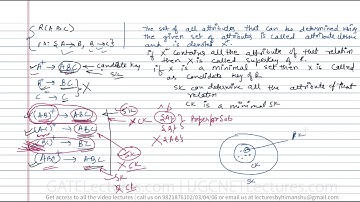 R(ABC)
{A→B, B→C}
The set of all attributes that can be determined using
the given set of attributes is called attribute closure
and is denoted X⁺
if X⁺ contains all the attribute of that relation
then X is called superkey of R.
if X is a minimal set then X is called
as candidate key of R.
A⁺ → ABC → candidate key
B⁺ → BC
C⁺ → C
(AB)⁺ → ABC
(AC)⁺ → ABC
(BC)⁺ → BC
(ABC)⁺ → ABC
SK
SK
SK
SK
CK
SK can determine all the attribute of that
relation
CK is a minimal SK
CK
SK
GATELectures.com | UGCNETLectures.com
Get access to all the video lectures | call us on 9821876102/03/04/06 or email us at lecturesbyhimanshu@gmail.com